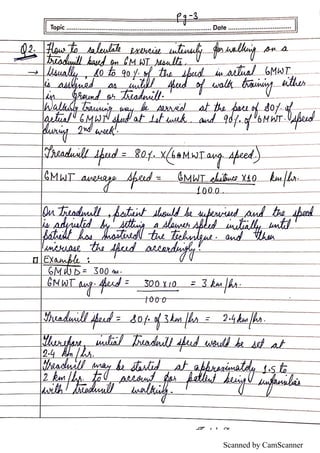 Pg-3
Topic Date
Q2. How to calculate exercise intensity for walking on a
treadmill based on 6MWT results.
→ Usually, 80 to 90% of the speed in actual 6MWT
is assigned as initial speed of walk training either
in ground or treadmill.
Walking training may be carried at the pace of 80% of
actual 6MWT speed at 1st week and 90% of 6MWT speed
during 2nd week.
Treadmill speed = 80% X (6MWT avg speed)
6MWT average speed = 6MWT distance X10 km/hr.
1000.
On treadmill, patient should be supervised and the speed
is adjusted by setting a slower speed initially until
patient has mastered the technique. and then
increase the speed accordingly.
Example:
6MWD = 300 m.
6MWT avg. speed = 300 X 10 = 3 km/hr.
1000
Treadmill speed = 80% of 3 km/hs = 2.4 km/hr.
Therefore, initial treadmill speed would be set at
2.4 km/hs.
Treadmill may be started at approximately 1.5 to
2 km/hr to account for patient being unfamiliar
with treadmill walking.
Scanned by CamScanner